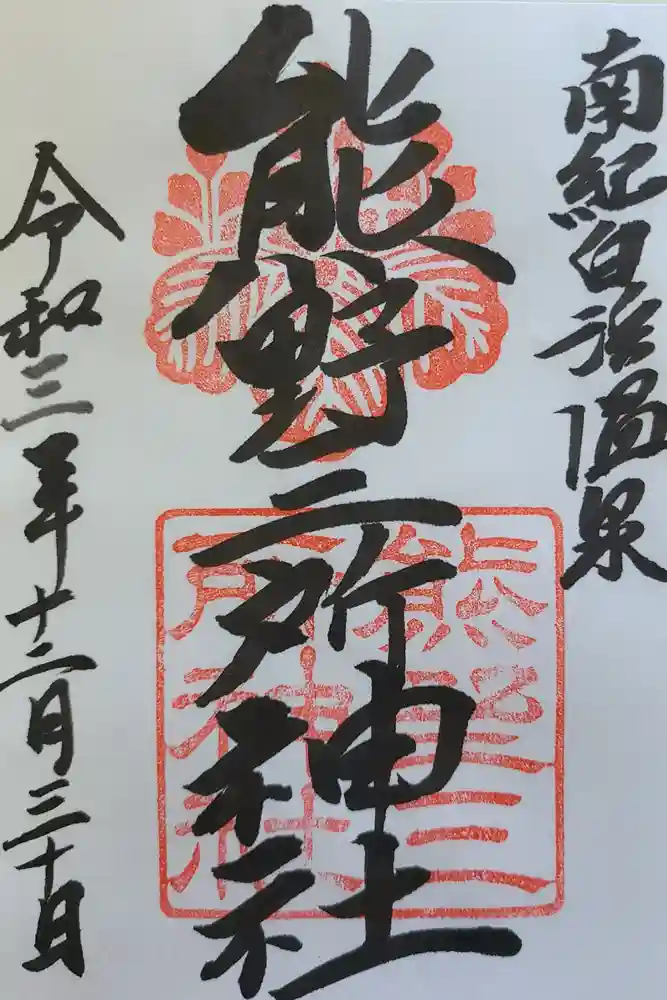 南紀白浜温泉
熊野三所神社
熊野三
所神社
令和三年十二月三十日